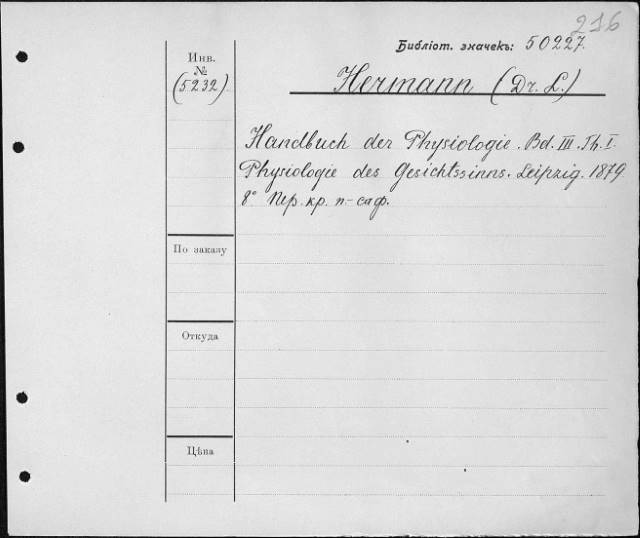 216
Библіот. значекъ: 50227.
Инв.
№
(5232)
Hermann (Dr. L.)
Handbuch der Physiologie. Bd. III. Th. I.
Physiologie des Gesichtssinns. Leipzig. 1879
8° Пер. кр. п-саф.
По заказу
Откуда
Цѣна